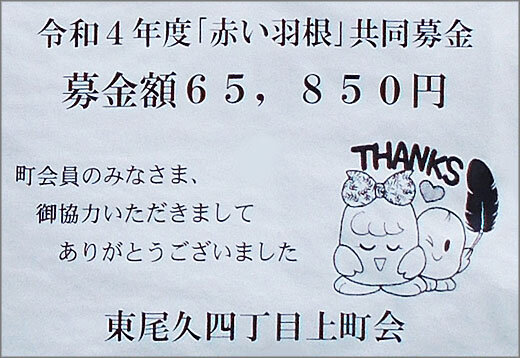 令和４年度「赤い羽根」共同募金
募金額６５，８５０円
THANKS
町会員のみなさま、
御協力いただきまして
ありがとうございました
東尾久四丁目上町会